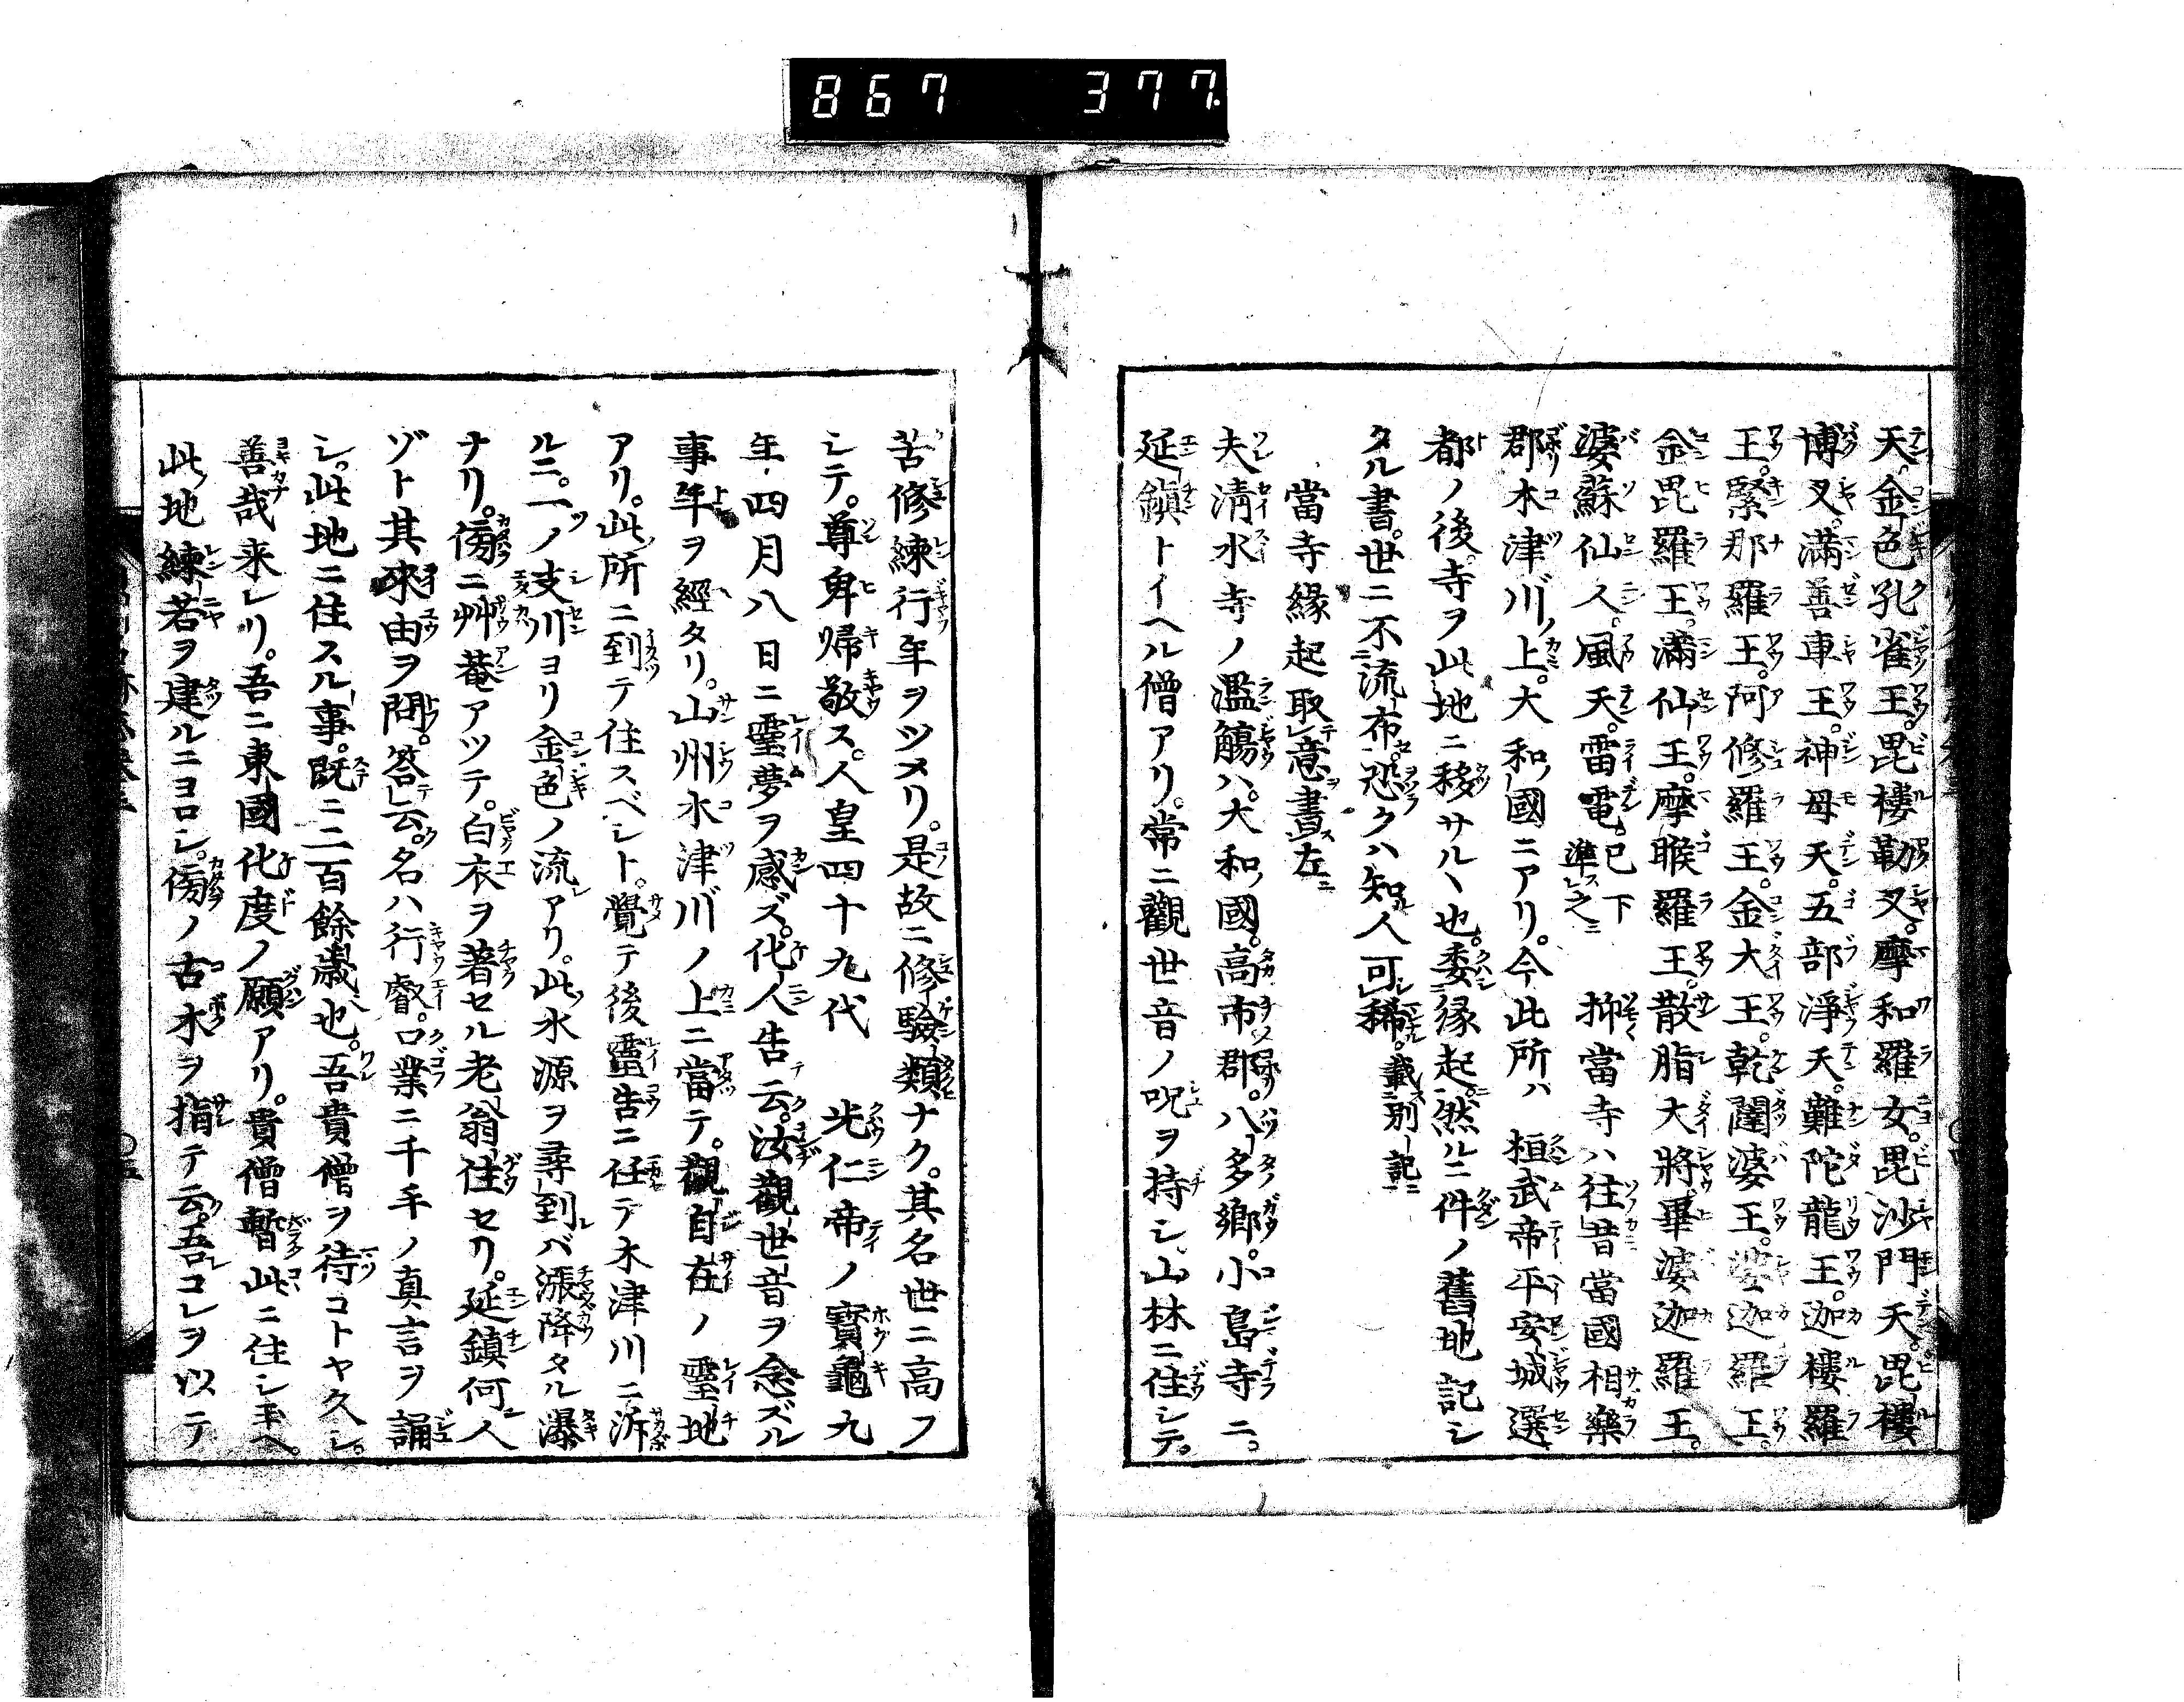 867 377.
天。金色孔雀王。毘樓勒叉。摩和羅女。毘沙門天。毘樓
博叉。滿善車王。神母天。五部淨天。難陀龍王。迦樓羅
王。緊那羅王。阿修羅王。金大王。乾闥婆王。娑迦羅王。
金毘羅王。滿仙王。摩睺羅王。散脂大將。畢婆迦羅王。
婆蘇仙人。風天。雷電。已下準之 抑當寺ハ往昔當國相樂
郡木津川ノ上。大和國ニアリ。今此所ハ 桓武帝平安城選
都ノ後。寺ヲ此地ニ移サルヽ也。委縁起。然ルニ件ノ舊地記シ
タル書。世ニ不流布。恐クハ知人可稀。載別記
當寺縁起取意書左
夫淸水寺ノ濫觴ハ。大和國。高市郡。八多郷。小島寺ニ。
延鎭トイヘル僧アリ。常ニ觀世音ノ呪ヲ持シ。山林ニ住シテ。
苦修練行年ヲツメリ。是故ニ修驗類ナク。其名世ニ高フ
シテ。尊卑帰敬ス。人皇四十九代 光仁帝ノ寳龜九
年四月八日ニ靈夢ヲ感ズ。化人告云。汝觀世音ヲ念ズル
事年ヲ經タリ。山州木津川ノ上ニ當テ。觀自在ノ靈地
アリ。此所ニ到テ住スベシト。覺テ後靈告ニ任テ木津川ニ泝
ルニ。一ノ支川ヨリ金色ノ流アリ。此水源ヲ尋到レバ漲降タル瀑
ナリ。傍ニ艸菴アツテ。白衣ヲ著セル老翁住セリ。延鎭何人
ゾト其來由ヲ問。答云。名ハ行叡。口業ニ千手ノ真言ヲ誦
シ。此地ニ住スル事。既ニ二百餘歳也。吾貴僧ヲ待コトヤ久シ。
善哉来レリ。吾ニ東國化度ノ願アリ。貴僧暫此ニ住シ玉ヘ。
此地練若ヲ建ルニヨロシ。傍ノ古木ヲ指テ云。吾コレヲ以テ